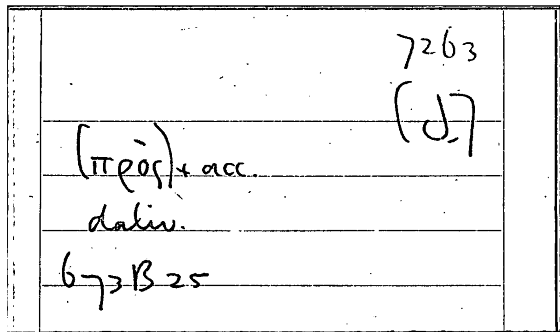 7263
(d.)
(πρός) + acc.
dativ.
673B 25